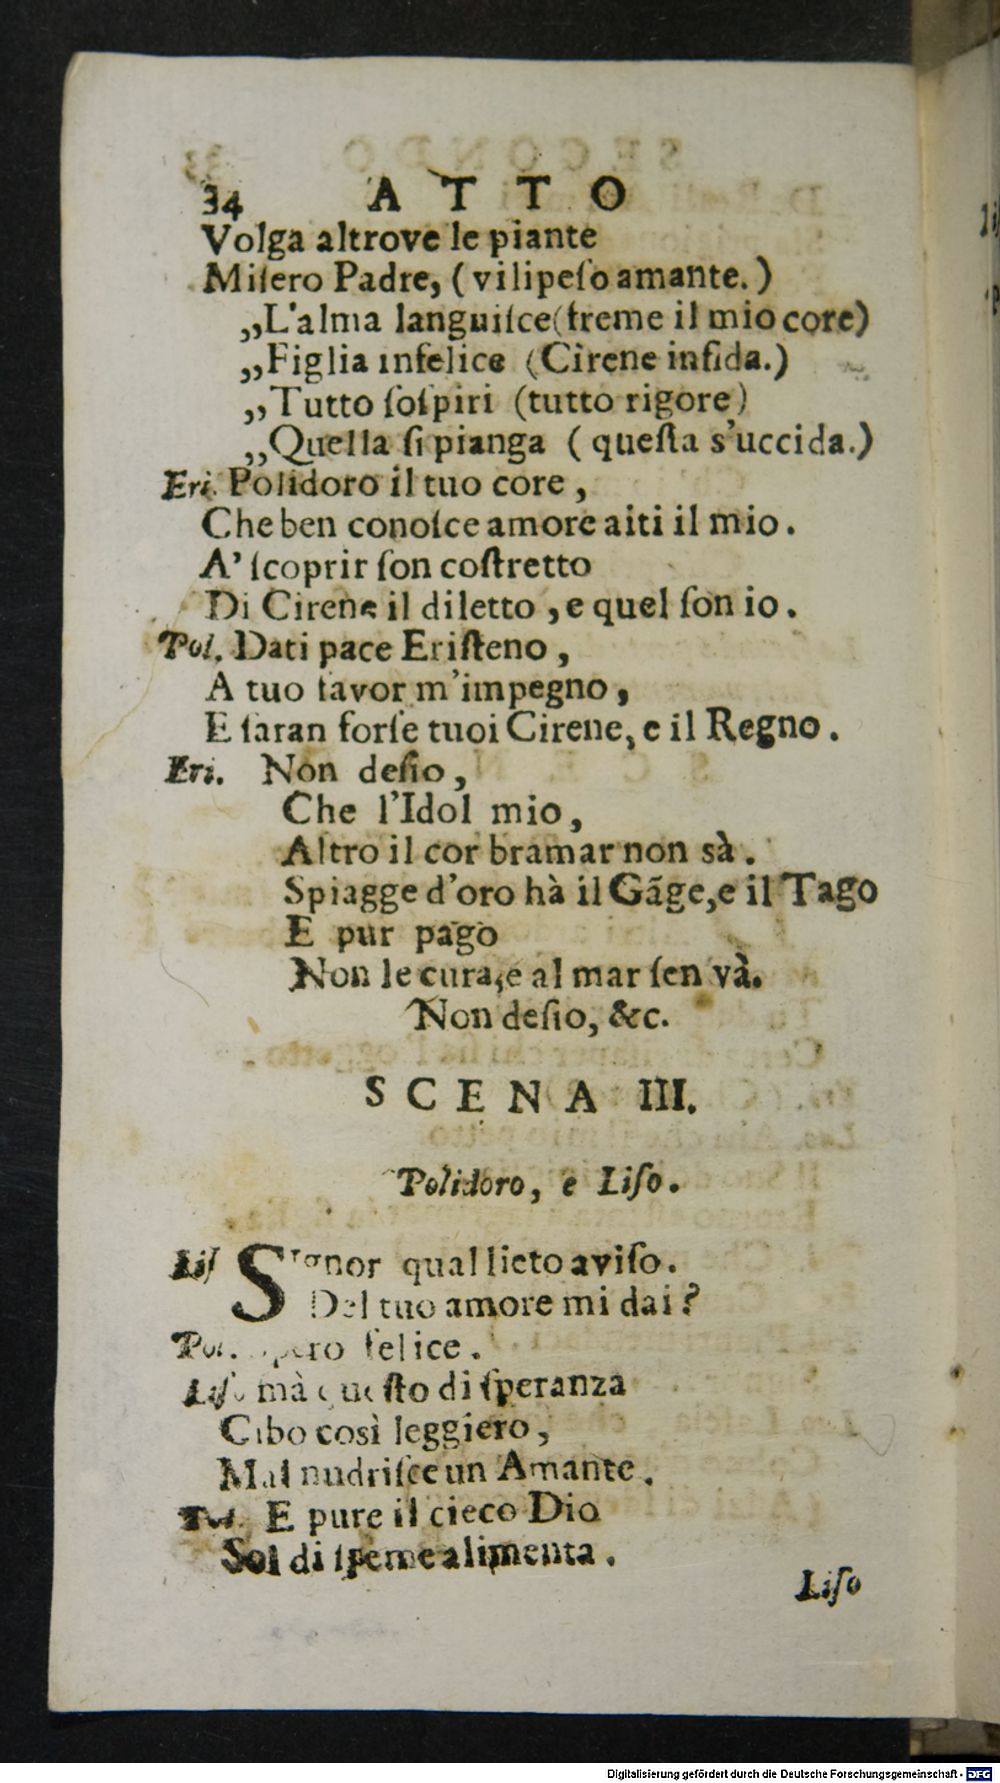 34 ATTO
Volga altrove le piante
Miſero Padre, (vilipeſo amante.)
„L'alma languiſce (freme il mio core)
„Figlia infelice (Cirene infida.)
„Tutto ſoſpiri (tutto rigore)
„Quella ſi pianga (queſta s'uccida.)
Eri. Polidoro il tuo core,
Che ben conoſce amore aiti il mio.
A' ſcoprir ſon coſtretto
Di Cirene il diletto, e quel ſon io.
Pol. Dati pace Eriſteno,
A tuo favor m'impegno,
E ſaran forſe tuoi Cirene, e il Regno.
Eri. Non deſio,
Che l'Idol mio,
Altro il cor bramar non sà.
Spiagge d'oro hà il Gãge, e il Tago
E pur pago
Non le cura, e al mar ſen và.
Non deſio, &c.
SCENA III.
Polidoro, e Liſo.
Liſ Signor qual lieto aviſo.
Del tuo amore mi dai?
Pol. Spero felice.
Liſ. mà queſto di ſperanza
Cibo così leggiero,
Mal nudriſce un Amante.
Pol. E pure il cieco Dio
Sol di ſpeme alimenta.
Liſo
Digitalisierung gefördert durch die Deutsche Forschungsgemeinschaft - DFG